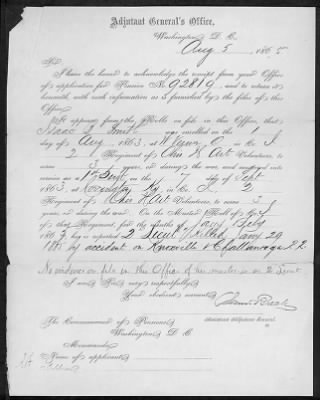 Adjutant General's Office,
Washington, D. C.
Aug 5, 1865
Sir:
I have the honor to acknowledge the receipt from your Office
of application for Pension No. 92819, and to return it
herewith with such information as is furnished by the files of this
Office.
It appears from the Rolls on file in this Office, that
Isaac was enrolled on the 1
day of Aug, 1863, at in Co.
2 Regiment of Ohio H Art Volunteers, to serve
3 years, or during the war, and mustered into
service as a 1st Sergt on the 7 day of Sept
1863, at Covington Ky, in Co. 2
Regiment of Ohio H Art Volunteers, to serve 3
years, or during the war. On the Muster Roll of Co
of that Regiment, for the months of
186, he is reported 2 Lieut Killed 29
186 by accident on Knoxville & Chattanooga R.R.
No evidence on file in this Office of his muster in as 2 Lieut
I am, Sir, very respectfully,
Your obedient servant,
Assistant Adjutant General.
The Commissioner of Pensions,
Washington, D. C.
Memoranda:
Name of applicant